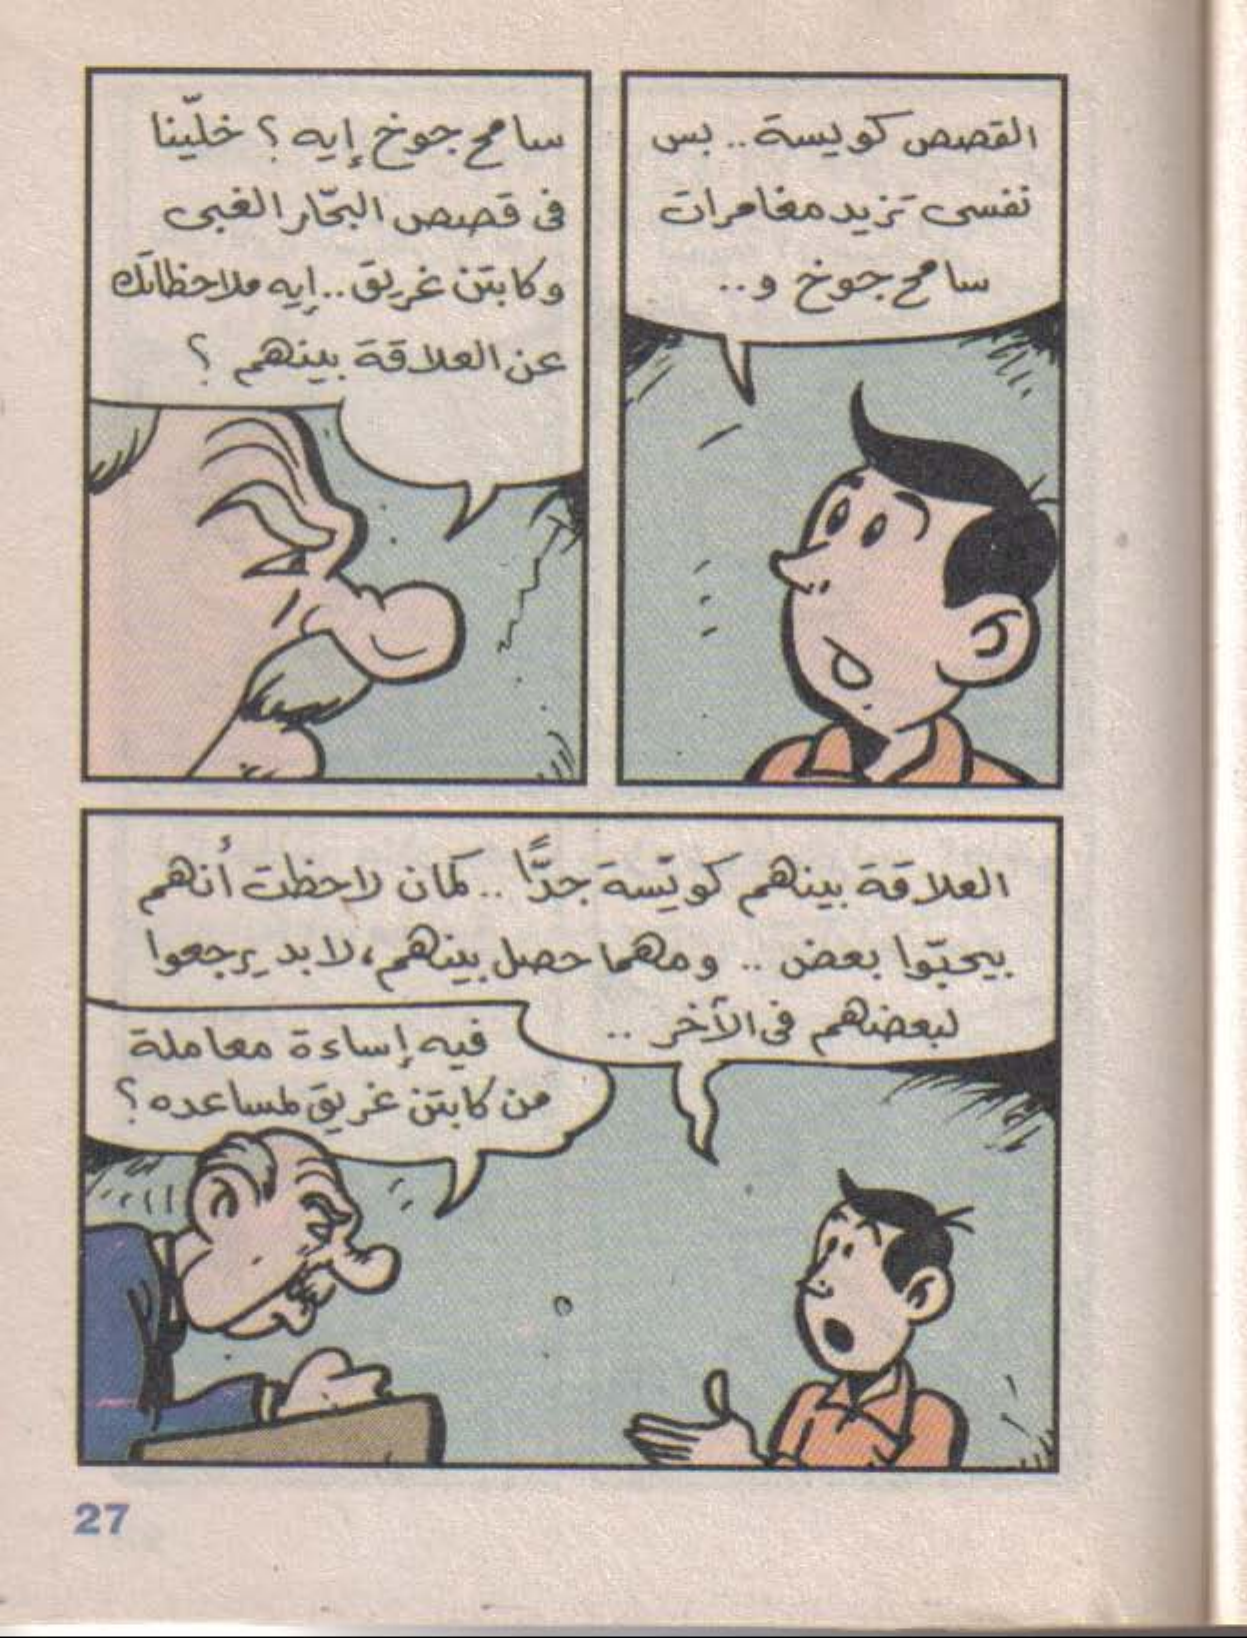 القصص كويسة.. بس
نفسى تزيد مغامرات
سامح جوخ و..
سامح جوخ إيه؟ خلّينا
فى قصص البحّار الغبى
وكابتن غريق.. إيه ملاحظاتك
عن العلاقة بينهم؟
العلاقة بينهم كويّسة جدًّا.. كمان لاحظت أنهم
بيحبّوا بعض.. ومهما حصل بينهم، لابد يرجعوا
لبعضهم فى الآخر..
فيه إساءة معاملة
من كابتن غريق لمساعده؟
27